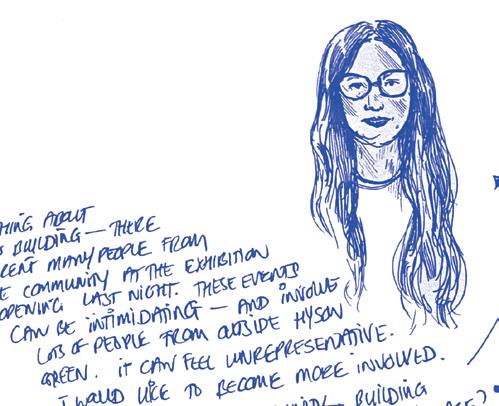 HING ABOUT
BUILDING — THERE
RENT MANY PEOPLE FROM
E COMMUNITY AT THE EXHIBITION
OPENING LAST NIGHT. THESE EVENTS
CAN BE INTIMIDATING — AND INVOLVE
LOTS OF PEOPLE FROM OUTSIDE HYSON
GREEN. IT CAN FEEL UNREPRESENTATIVE.
I WOULD LIKE TO BECOME MORE INVOLVED.
BUILDING